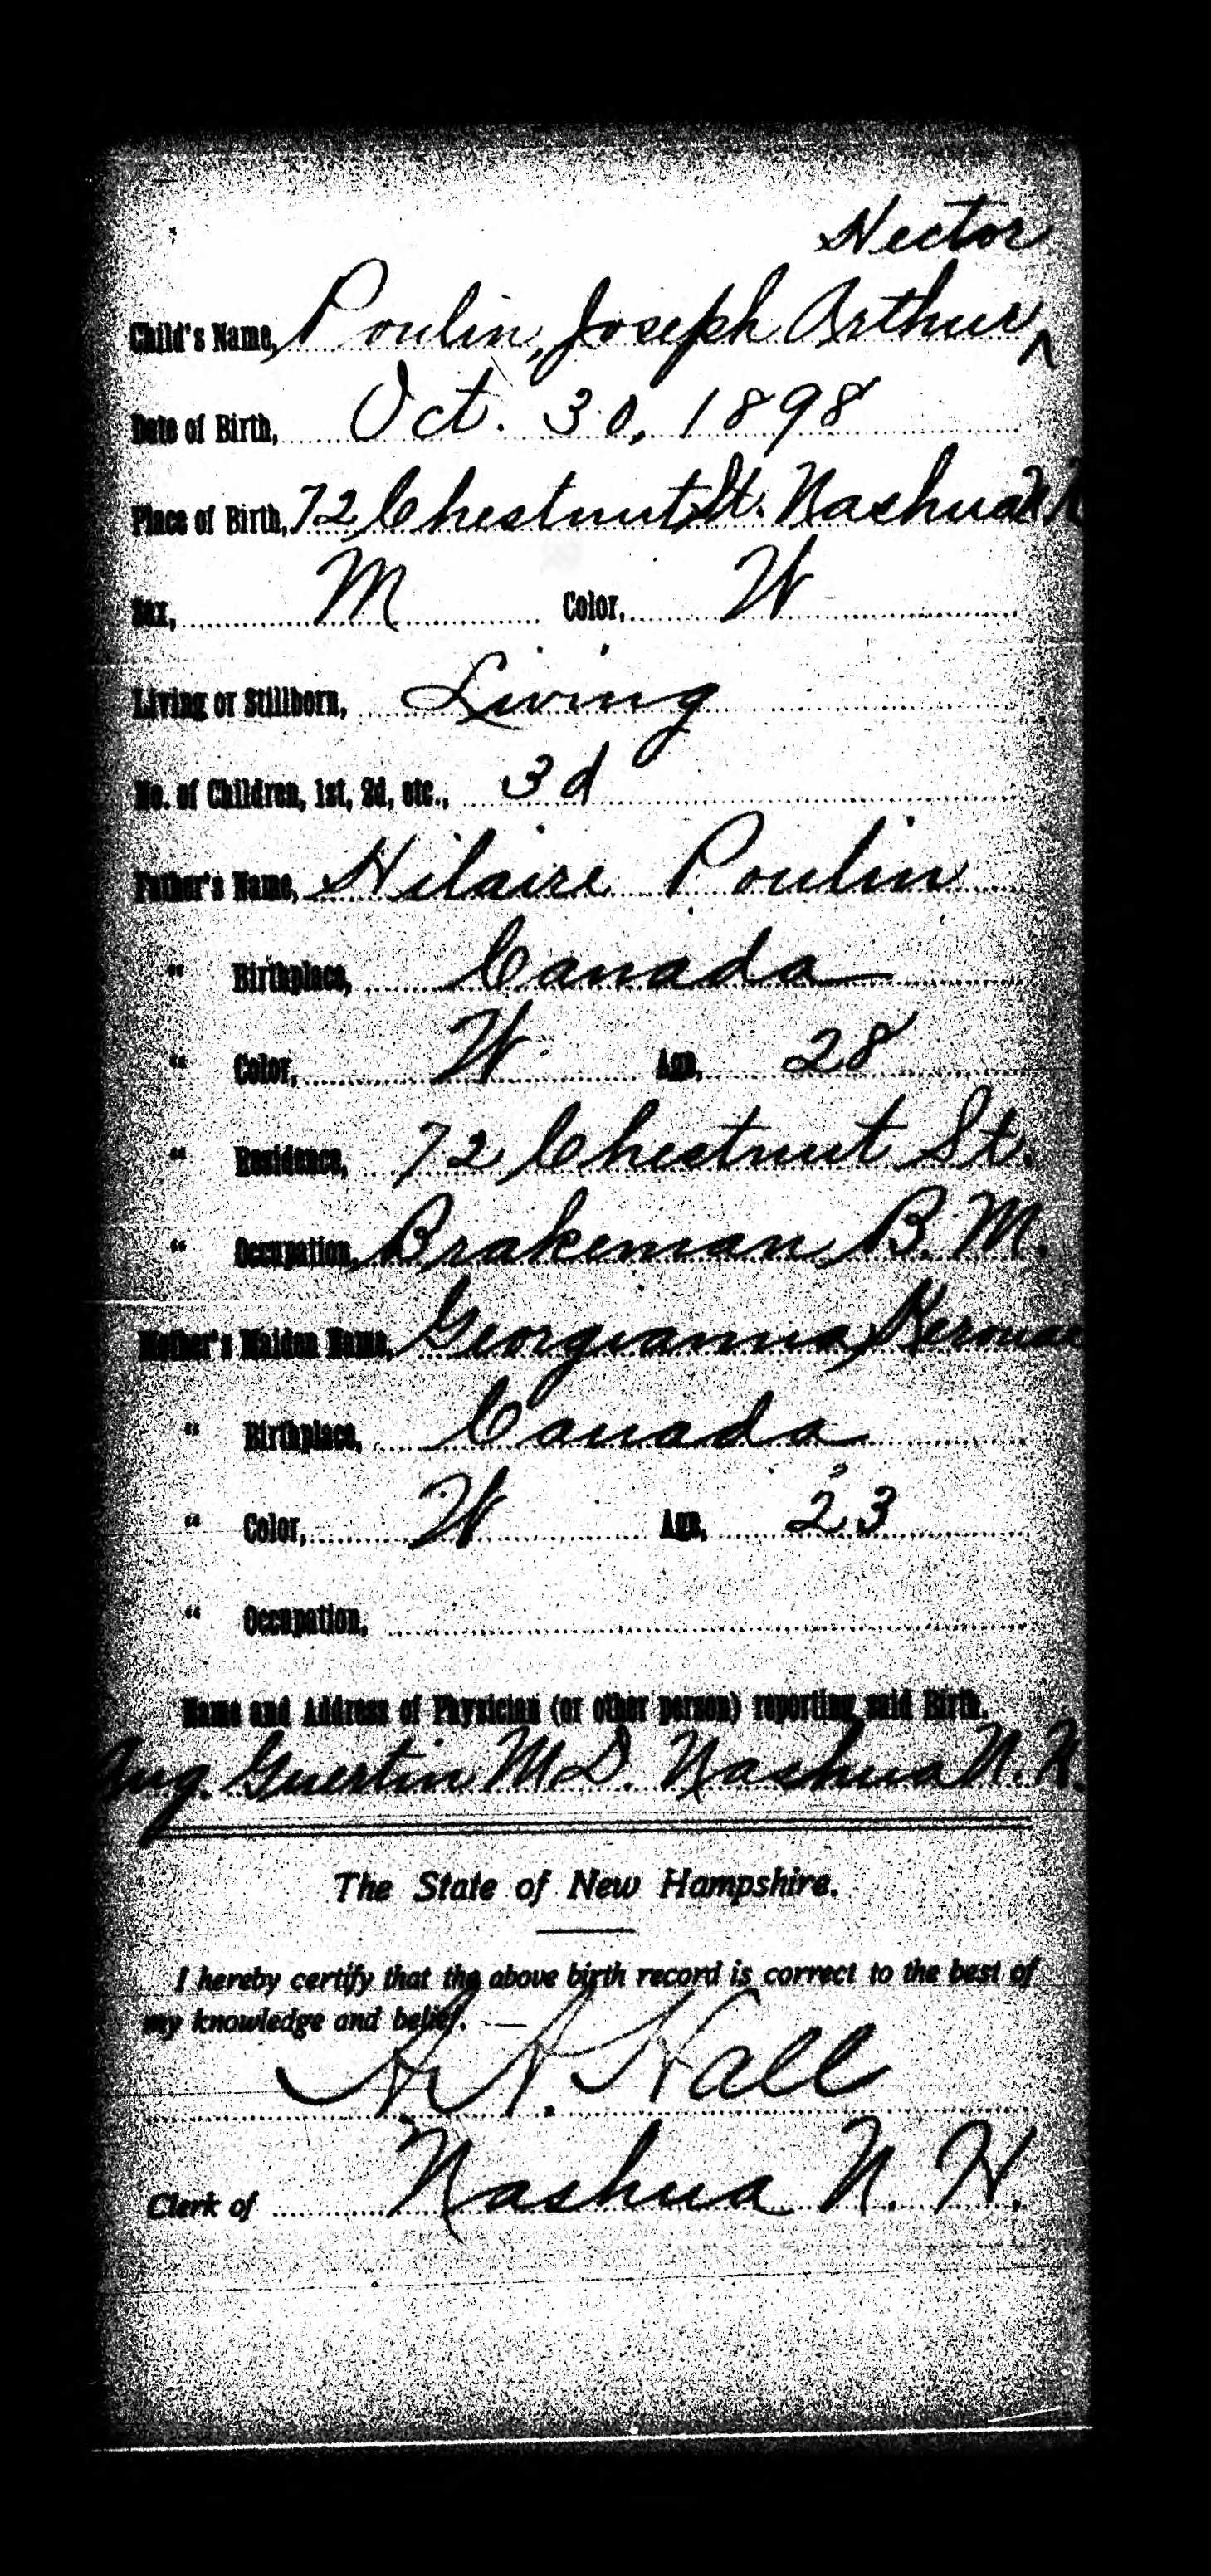 Hector
Child's Name, Poulin, Joseph Arthur ^
Date of Birth, Oct. 30, 1898
Place of Birth, 72 Chestnut St. Nashua N H
Sex, M Color, W
Living or Stillborn, Living
No. of Children, 1st, 2d, etc., 3d
Father's Name, Hilaire Poulin
" Birthplace, Canada
" Color, W. Age, 28
" Residence, 72 Chestnut St.
" Occupation, Brakeman, B. M.
Mother's Maiden Name, Georgianna Kerouac
" Birthplace, Canada
" Color, W Age, 23
" Occupation,
Name and Address of Physician (or other person) reporting said Birth.
Aug. Guertin M.D. Nashua N. H.
The State of New Hampshire.
I hereby certify that the above birth record is correct to the best of
my knowledge and belief.
Hall
Clerk of Nashua N. H.